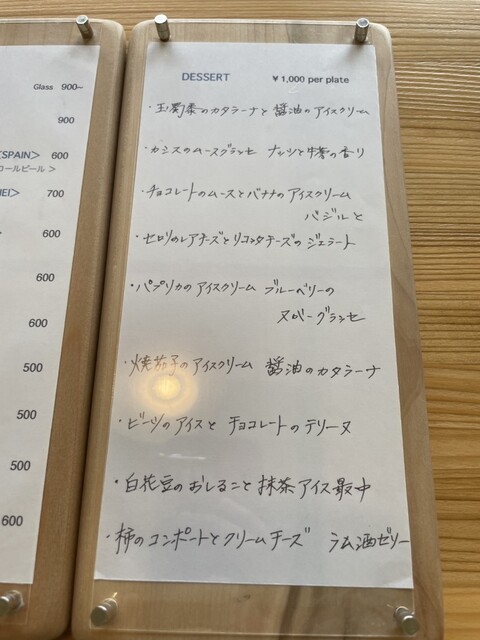 Glass 900~
900
SPAIN> 600
コールビール >
EI> 700
600
600
600
500
500
500
600
DESSERT ¥1,000 per plate
・玉蜀黍のカタラーナと 醤油のアイスクリーム
・カシスのムースグラッセ ナッツと牛蒡の香り
・チョコレートのムースとバナナのアイスクリーム
バジルと
・セロリのレアチーズとリコッタチーズのジェラート
・パプリカのアイスクリーム ブルーベリーの
ヌガーグラッセ
・焼茄子のアイスクリーム 醤油のカタラーナ
・ビーツのアイスと チョコレートのテリーヌ
・白花豆のおしること 抹茶アイス最中
・柿のコンポートとクリームチーズ ラム酒ゼリー